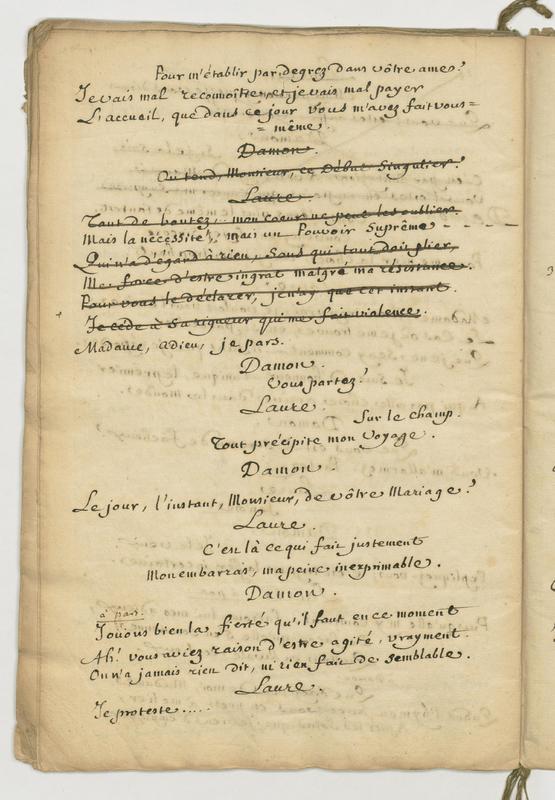 Pour m'établir par degrez dans vôtre ame?
Je vais mal reconnoître, et je vais mal payer
L'accueil, que dans ce jour vous m'avez fait vous=
= même.
Damon.
Où tend, Monsieur, ce Début Singulier?
Laure.
Tant de bontez, mon coeur ne peut les oublier.
Mais la nécessité, mais un Pouvoir Suprême
Qui n'a d'égard à rien, sous qui tout doit plier,
Me force d'estre ingrat malgré ma résistance.
Pour vous le déclarer, je n'ay que cet instant.
+ Je cede à sa rigueur qui me fait violence.
Madame, adieu, je pars.
Damon.
Vous partez?
Laure.
Sur le champ.
Tout précipite mon Voyage.
Damon.
Le jour, l'instant, Monsieur, de vôtre Mariage?
Laure.
C'est là ce qui fait justement
Mon embarras, ma peine inexprimable.
Damon.
à part.
Joüons bien la fierté qu'il faut en ce moment
Ah! vous aviez raison d'estre agité, vrayment.
On n'a jamais rien dit, ni rien fait de semblable.
Laure.
Je proteste.....